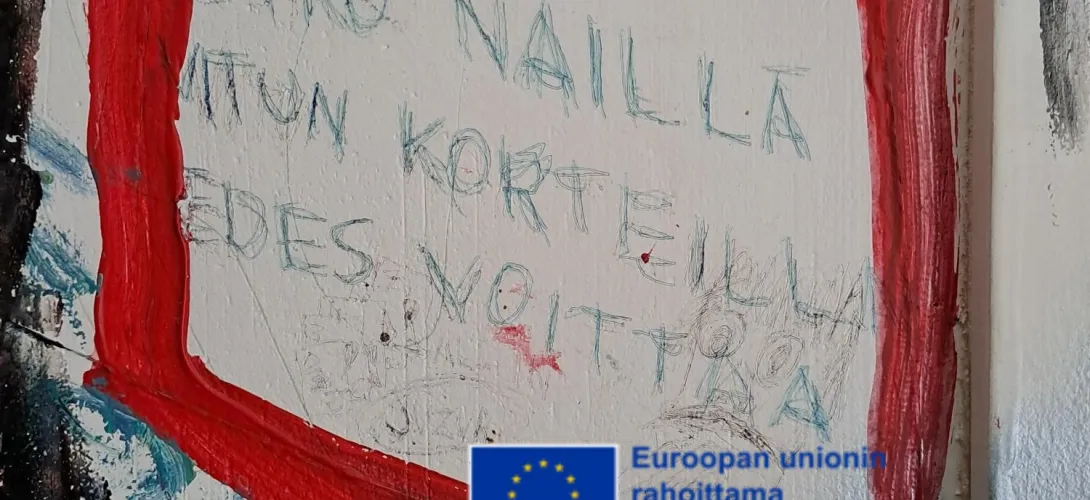 NAILLÄ
VITUN KORTEILLA
EDES VOITTAA
Euroopan unionin
rahoittama